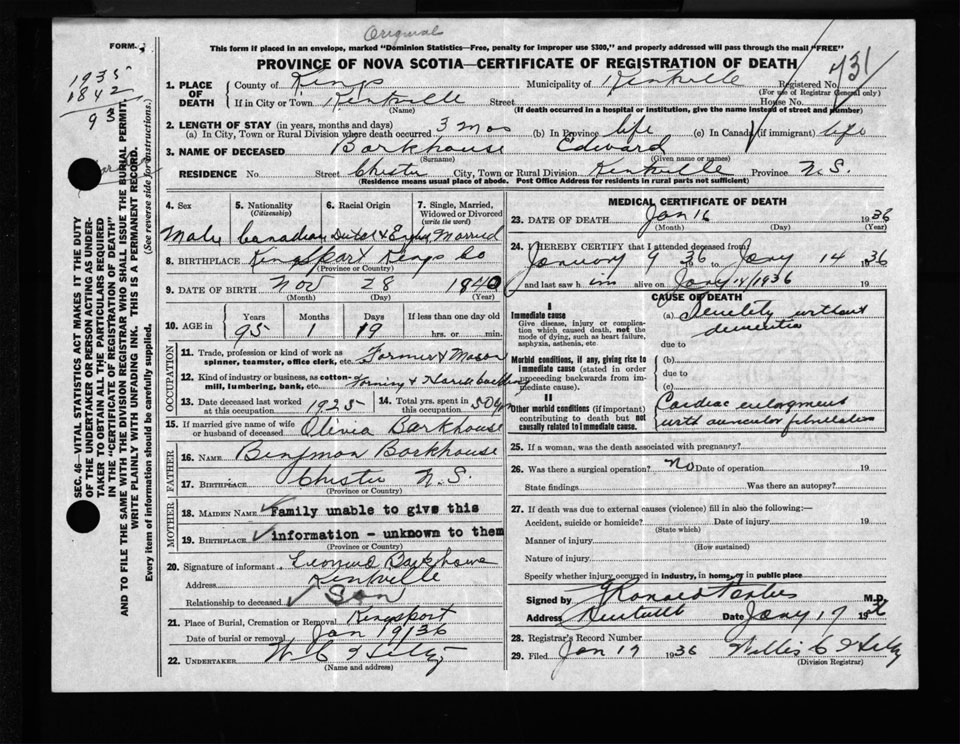 Original
FORM
This form if placed in an envelope, marked "Dominion Statistics—Free, penalty for improper use $300," and properly addressed will pass through the mail "FREE"
PROVINCE OF NOVA SCOTIA—CERTIFICATE OF REGISTRATION OF DEATH
1935
1842
93
731
1. PLACE OF DEATH
County of Kings Municipality of Kentville Registered No.
(For use of Registrar General only)
If in City or Town Kentville Street House No.
(Name) (If death occurred in a hospital or institution, give the name instead of street and number)
2. LENGTH OF STAY (in years, months and days)
(a) In City, Town or Rural Division where death occurred 3 mos (b) In Province life (c) In Canada (if immigrant) life
3. NAME OF DECEASED Barkhouse Edward
(Surname) (Given name or names)
RESIDENCE No. Street Chester City, Town or Rural Division Kentville Province N.S.
(Residence means usual place of abode. Post Office Address for residents in rural parts not sufficient)
4. Sex 5. Nationality (Citizenship) 6. Racial Origin 7. Single, Married, Widowed or Divorced (write the word)
Male Canadian Dutch & Married
8. BIRTHPLACE Kingsport Kings Co
(Province or Country)
9. DATE OF BIRTH Nov 28 1840
(Month) (Day) (Year)
10. AGE in Years Months Days If less than one day old
95 1 19 hrs. or min.
OCCUPATION
11. Trade, profession or kind of work as spinner, teamster, office clerk, etc. Farmer & Mason
12. Kind of industry or business, as cotton-mill, lumbering, bank, etc. Farming &
13. Date deceased last worked at this occupation 1925 14. Total yrs. spent in this occupation 50 yr
15. If married give name of wife or husband of deceased Olivia Barkhouse
FATHER
16. NAME Benjman Barkhouse
17. BIRTHPLACE Chester N.S.
(Province or Country)
MOTHER
18. MAIDEN NAME Family unable to give this
19. BIRTHPLACE information - unknown to them
(Province or Country)
20. Signature of informant Leonard Barkhouse
Address Kentville
Relationship to deceased Son
21. Place of Burial, Cremation or Removal Kingsport
Date of burial or removal Jan 19/36
22. UNDERTAKER W C Hiltz
(Name and address)
MEDICAL CERTIFICATE OF DEATH
23. DATE OF DEATH Jan 16 1936
(Month) (Day) (Year)
24. I HEREBY CERTIFY that I attended deceased from
January 9 36 to Jany 14 1936
and last saw h im alive on Jany 14/1936
CAUSE OF DEATH
I
Immediate cause
Give disease, injury or complication which caused death, not the mode of dying, such as heart failure, asphyxia, asthenia, etc.
(a) Senility without dementia
due to
Morbid conditions, if any, giving rise to immediate cause (stated in order proceeding backwards from immediate cause).
(b)
due to
(c)
II
Other morbid conditions (if important) contributing to death but not causally related to immediate cause.
Cardiac enlargment
with auricular fibrillation
25. If a woman, was the death associated with pregnancy?
26. Was there a surgical operation? no Date of operation 19
State findings Was there an autopsy?
27. If death was due to external causes (violence) fill in also the following:—
Accident, suicide or homicide? Date of injury 19
(State which)
Manner of injury
(How sustained)
Nature of injury
Specify whether injury occurred in industry, in home, or in public place
Signed by M.D.
Address Date Jany 17 1936
28. Registrar's Record Number
29. Filed Jan 17 1936 Willis C Hiltz
(Division Registrar)
SEC. 46—VITAL STATISTICS ACT MAKES IT THE DUTY
OF THE UNDERTAKER OR PERSON ACTING AS UNDER-
TAKER TO OBTAIN ALL THE PARTICULARS REQUIRED
IN THE "CERTIFICATE OF REGISTRATION OF DEATH"
AND TO FILE THE SAME WITH THE DIVISION REGISTRAR WHO SHALL ISSUE THE BURIAL PERMIT.
WRITE PLAINLY WITH UNFADING INK. THIS IS A PERMANENT RECORD.
Every item of information should be carefully supplied. (See reverse side for instructions.)